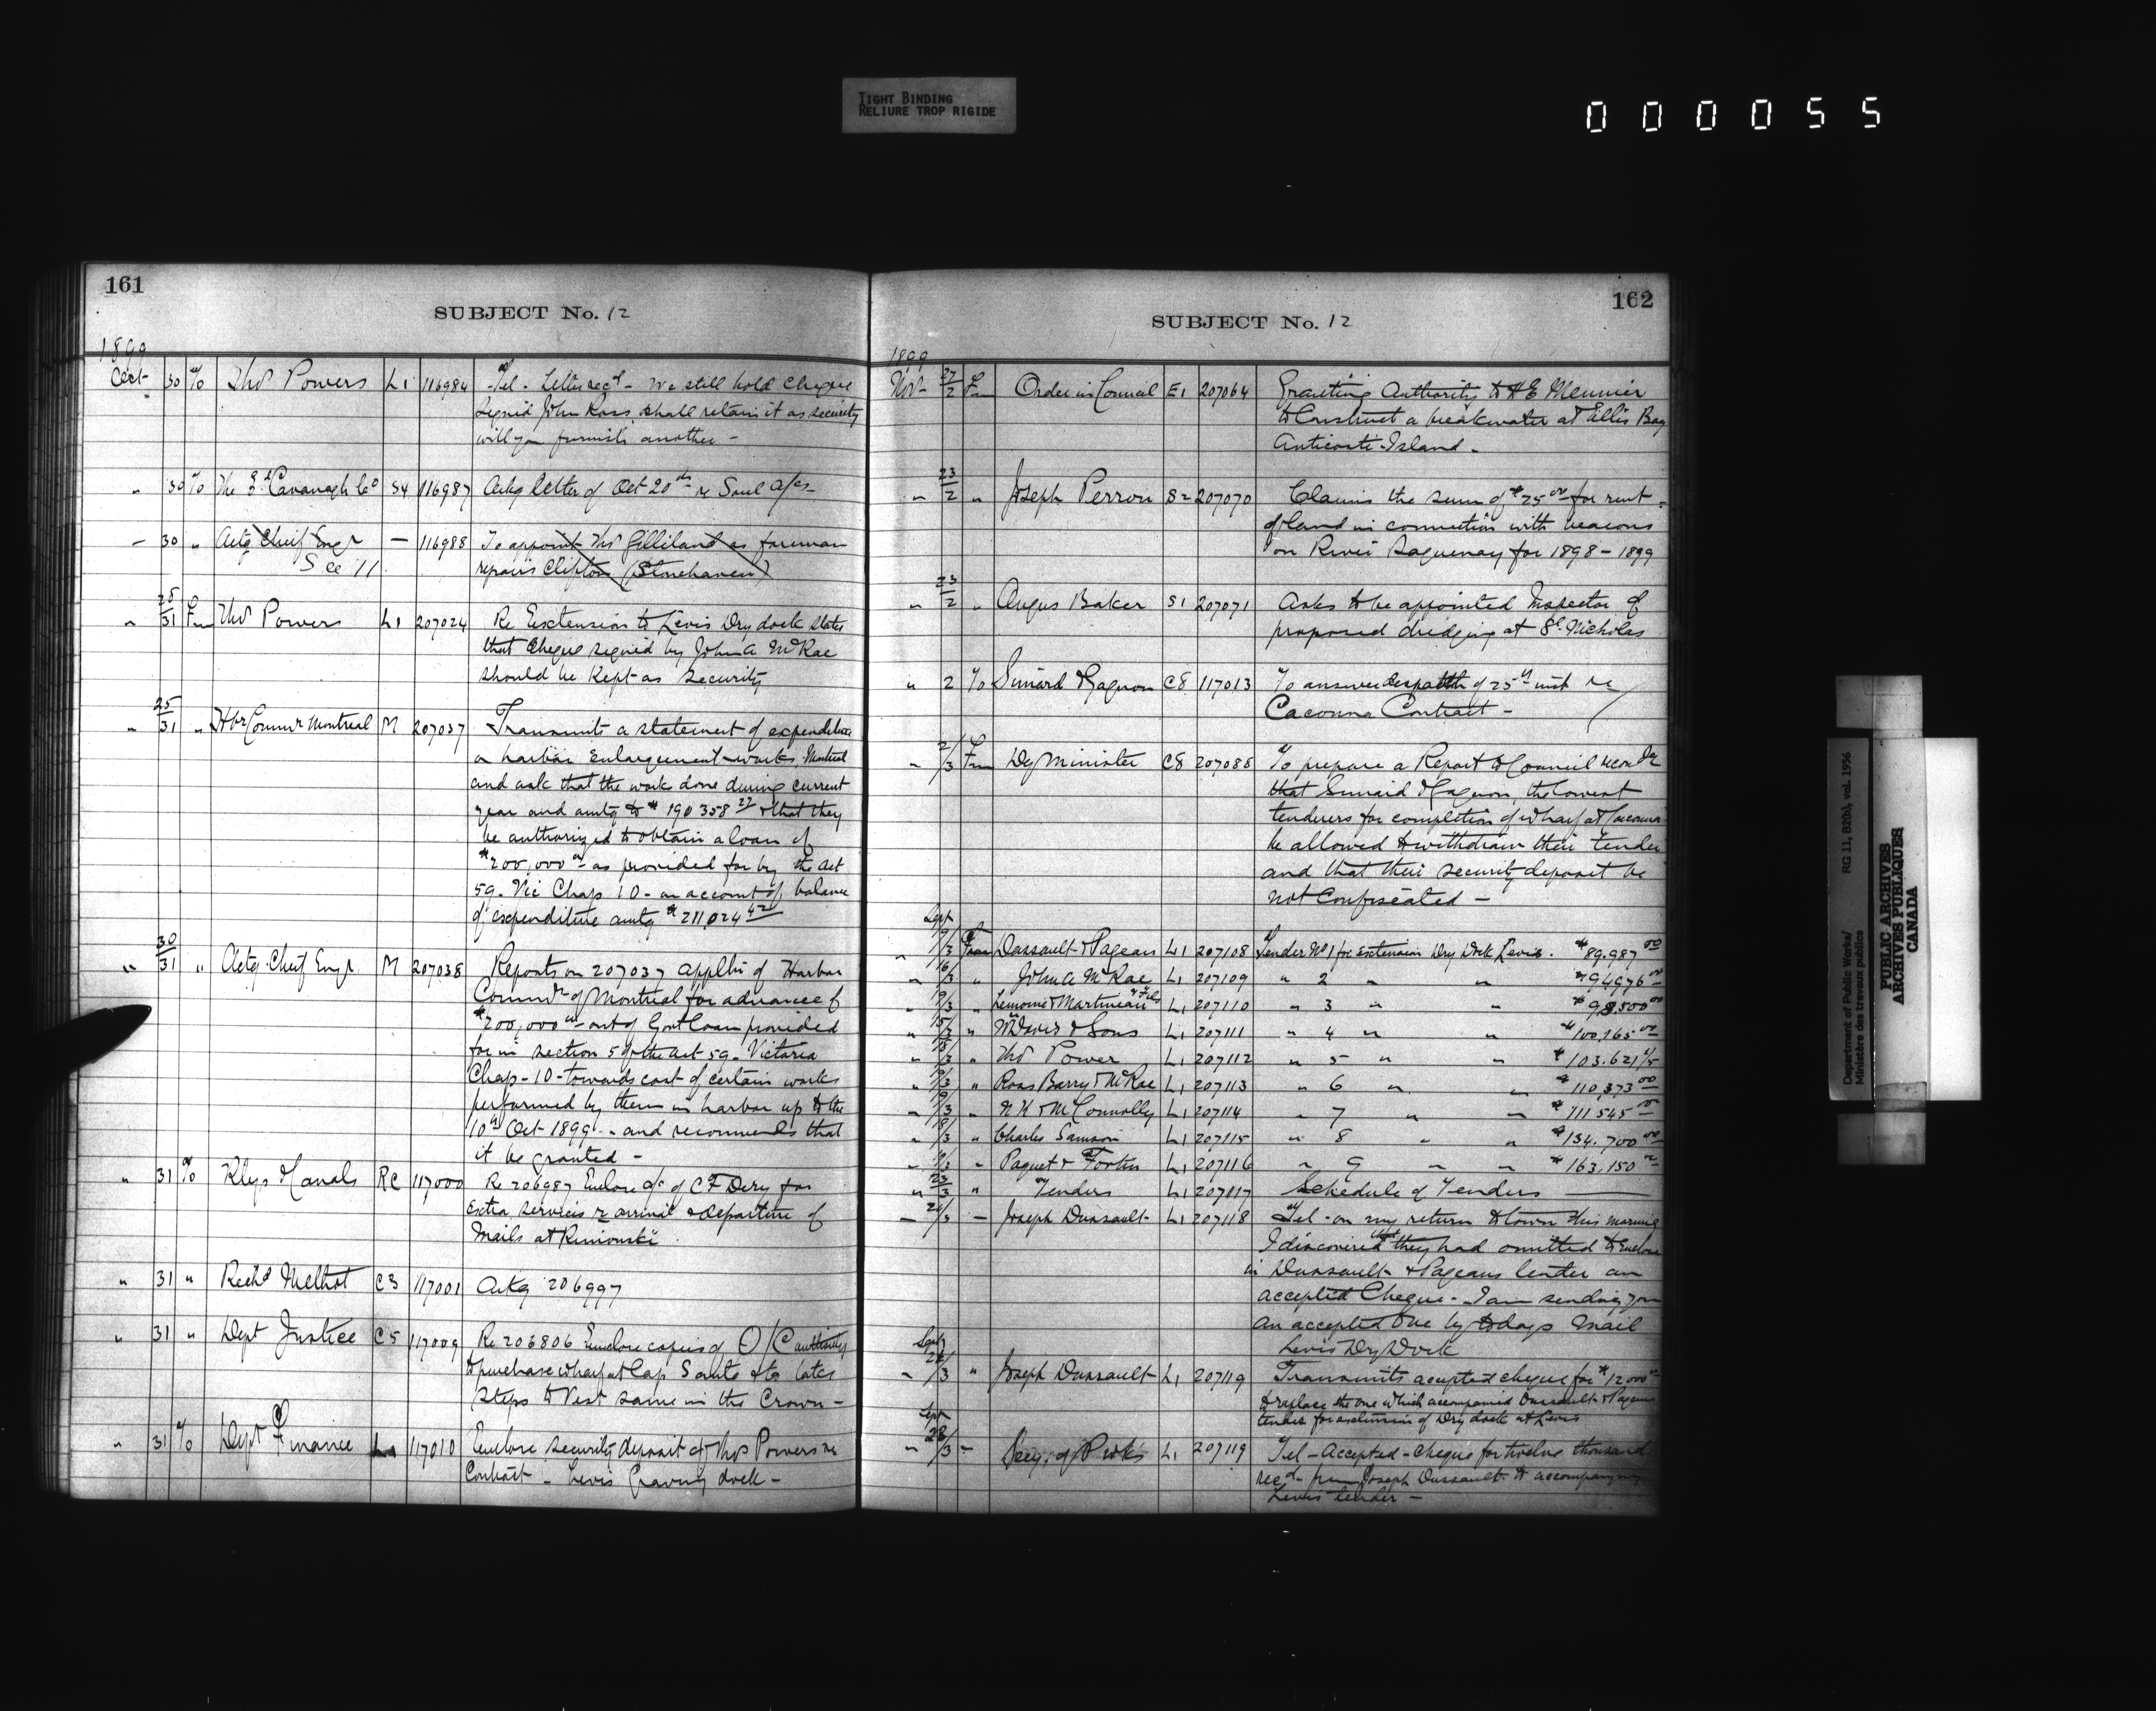 TIGHT BINDING
RELIURE TROP RIGIDE
000055
161
SUBJECT No. 12
1899
Oct 30 To Thos Powers L1 116984 Tel - Letter recd - We still hold cheque
signed John Ross shall retain it as security
will you furnish another -
" 30 To The Ed Cavanagh Co S4 116987 Ackg letter of Oct 20th re Soul a/cs -
" 30 " Actg Chief Engr — 116988 To appoint Thos Gilliland as foreman
See 11 repairs Clifton (Stonehaven)
" 28/31 Fm Thos Powers L1 207024 Re Extension to Levis Dry dock states
that cheque signed by John A McRae
should be kept as security
" 25/31 " Hbr Commr Montreal M 207037 Transmits a statement of expenditure
on harbor enlargement works Montreal
and ask that the work done during current
year and amtg to $190 358 27 & that they
be authorized to obtain a loan of
$200,000 00 as provided for by the act
59. Vic Chap 10 - on account of balance
of expenditure amtg $211,024 42
" 30/31 " Actg Chief Engr M 207038 Reports on 207037 applin of Harbor
Commrs of Montreal for advance of
$200,000 00 out of Govt loan provided
for in section 5 of the act 59. Victoria
Chap - 10 - towards cost of certain works
performed by them in harbor up to the
10th Oct 1899 - and recommends that
it be granted -
" 31 To Rlys & Canals RC 117000 Re 206987 Enclose a/c of CF Dery for
extra services re arrival & departure of
Mails at Rimouski
" 31 " Richd Melhot C3 117001 Ackg 206997
" 31 " Dept Justice C5 117009 Re 206806 Enclose copies of O/C authority
to purchase wharf at Cap Sante & to take
steps to Vest same in the Crown -
" 31 To Dept Finance L1 117010 Enclose security deposit of Thos Powers re
Contract - Levis Graving dock -
162
SUBJECT No. 12
1899
Nov 27/2 Fm Order in Council E1 207064 Granting Authority to H E Meunier
to Construct a breakwater at Ellis Bay
Anticosti Island -
" 23/2 " Joseph Perron S2 207070 Claims the sum of $25 00 for rent
of land in connection with beacons
on River Saguenay for 1898 - 1899
" 23/2 " Angus Baker S1 207071 Asks to be appointed Inspector of
proposed dredging at St Nicholas
" 2 To Simard & Gagnon C8 117013 To answer despatch of 25th inst re
Cacouna Contract -
" 2/3 Fm Dy Minister C8 207088 To prepare a Report to Council
that Simard & Gagnon, the lowest
tenderers for completion of wharf at Cacouna
be allowed to withdraw their tender
and that their security deposit be
not Confiscated -
Sept
" 19/3 From Dussault & Pageau L1 207108 Tender No 1 for extension Dry Dock Levis. $89.987 00
" 16/3 " John A McRae L1 207109 " 2 " " $94976 00
" 19/3 " Lemoine & Martineau & Fils L1 207110 " 3 " " $98.500 00
" 15/3 " M Davis & Sons L1 207111 " 4 " " $100,165 00
" 15/3 " Thos Power L1 207112 " 5 " " $103.621
" 19/3 " Ross Barry & McRae L1 207113 " 6 " " $110,373 00
" 19/3 " N K & M Connolly L1 207114 " 7 " " $111 545 00
" 18/3 " Charles Samson L1 207115 " 8 " " $134.700 00
" 19/3 " Paquet & Fortin L1 207116 " 9 " " $163,150 00
" 23/3 " Tenders L1 207117 Schedule of Tenders —
— 26/3 — Joseph Dussault L1 207118 Tel - on my return to town this morning
I discovered that they had omitted to enclose
in Dussault & Pageaus tender an
accepted Cheque - I am sending you
an accepted one by todays Mail
Levis Dry Dock
Sept
" 26/3 " Joseph Dussault L1 207119 Transmits accepted cheque for $12 000 00
to replace the one which accompanied Dussault & Pageaus
tender for extension of Dry dock at Levis
Sept
" 28/3 — Secy. of P Wks L1 207119 Tel - Accepted - Cheque for twelve thousand
recd from Joseph Dussault to accompany
Levis tender -
Department of Public Works/ RG 11, B2(b), vol. 1956
Ministère des travaux publics
PUBLIC ARCHIVES
ARCHIVES PUBLIQUES
CANADA